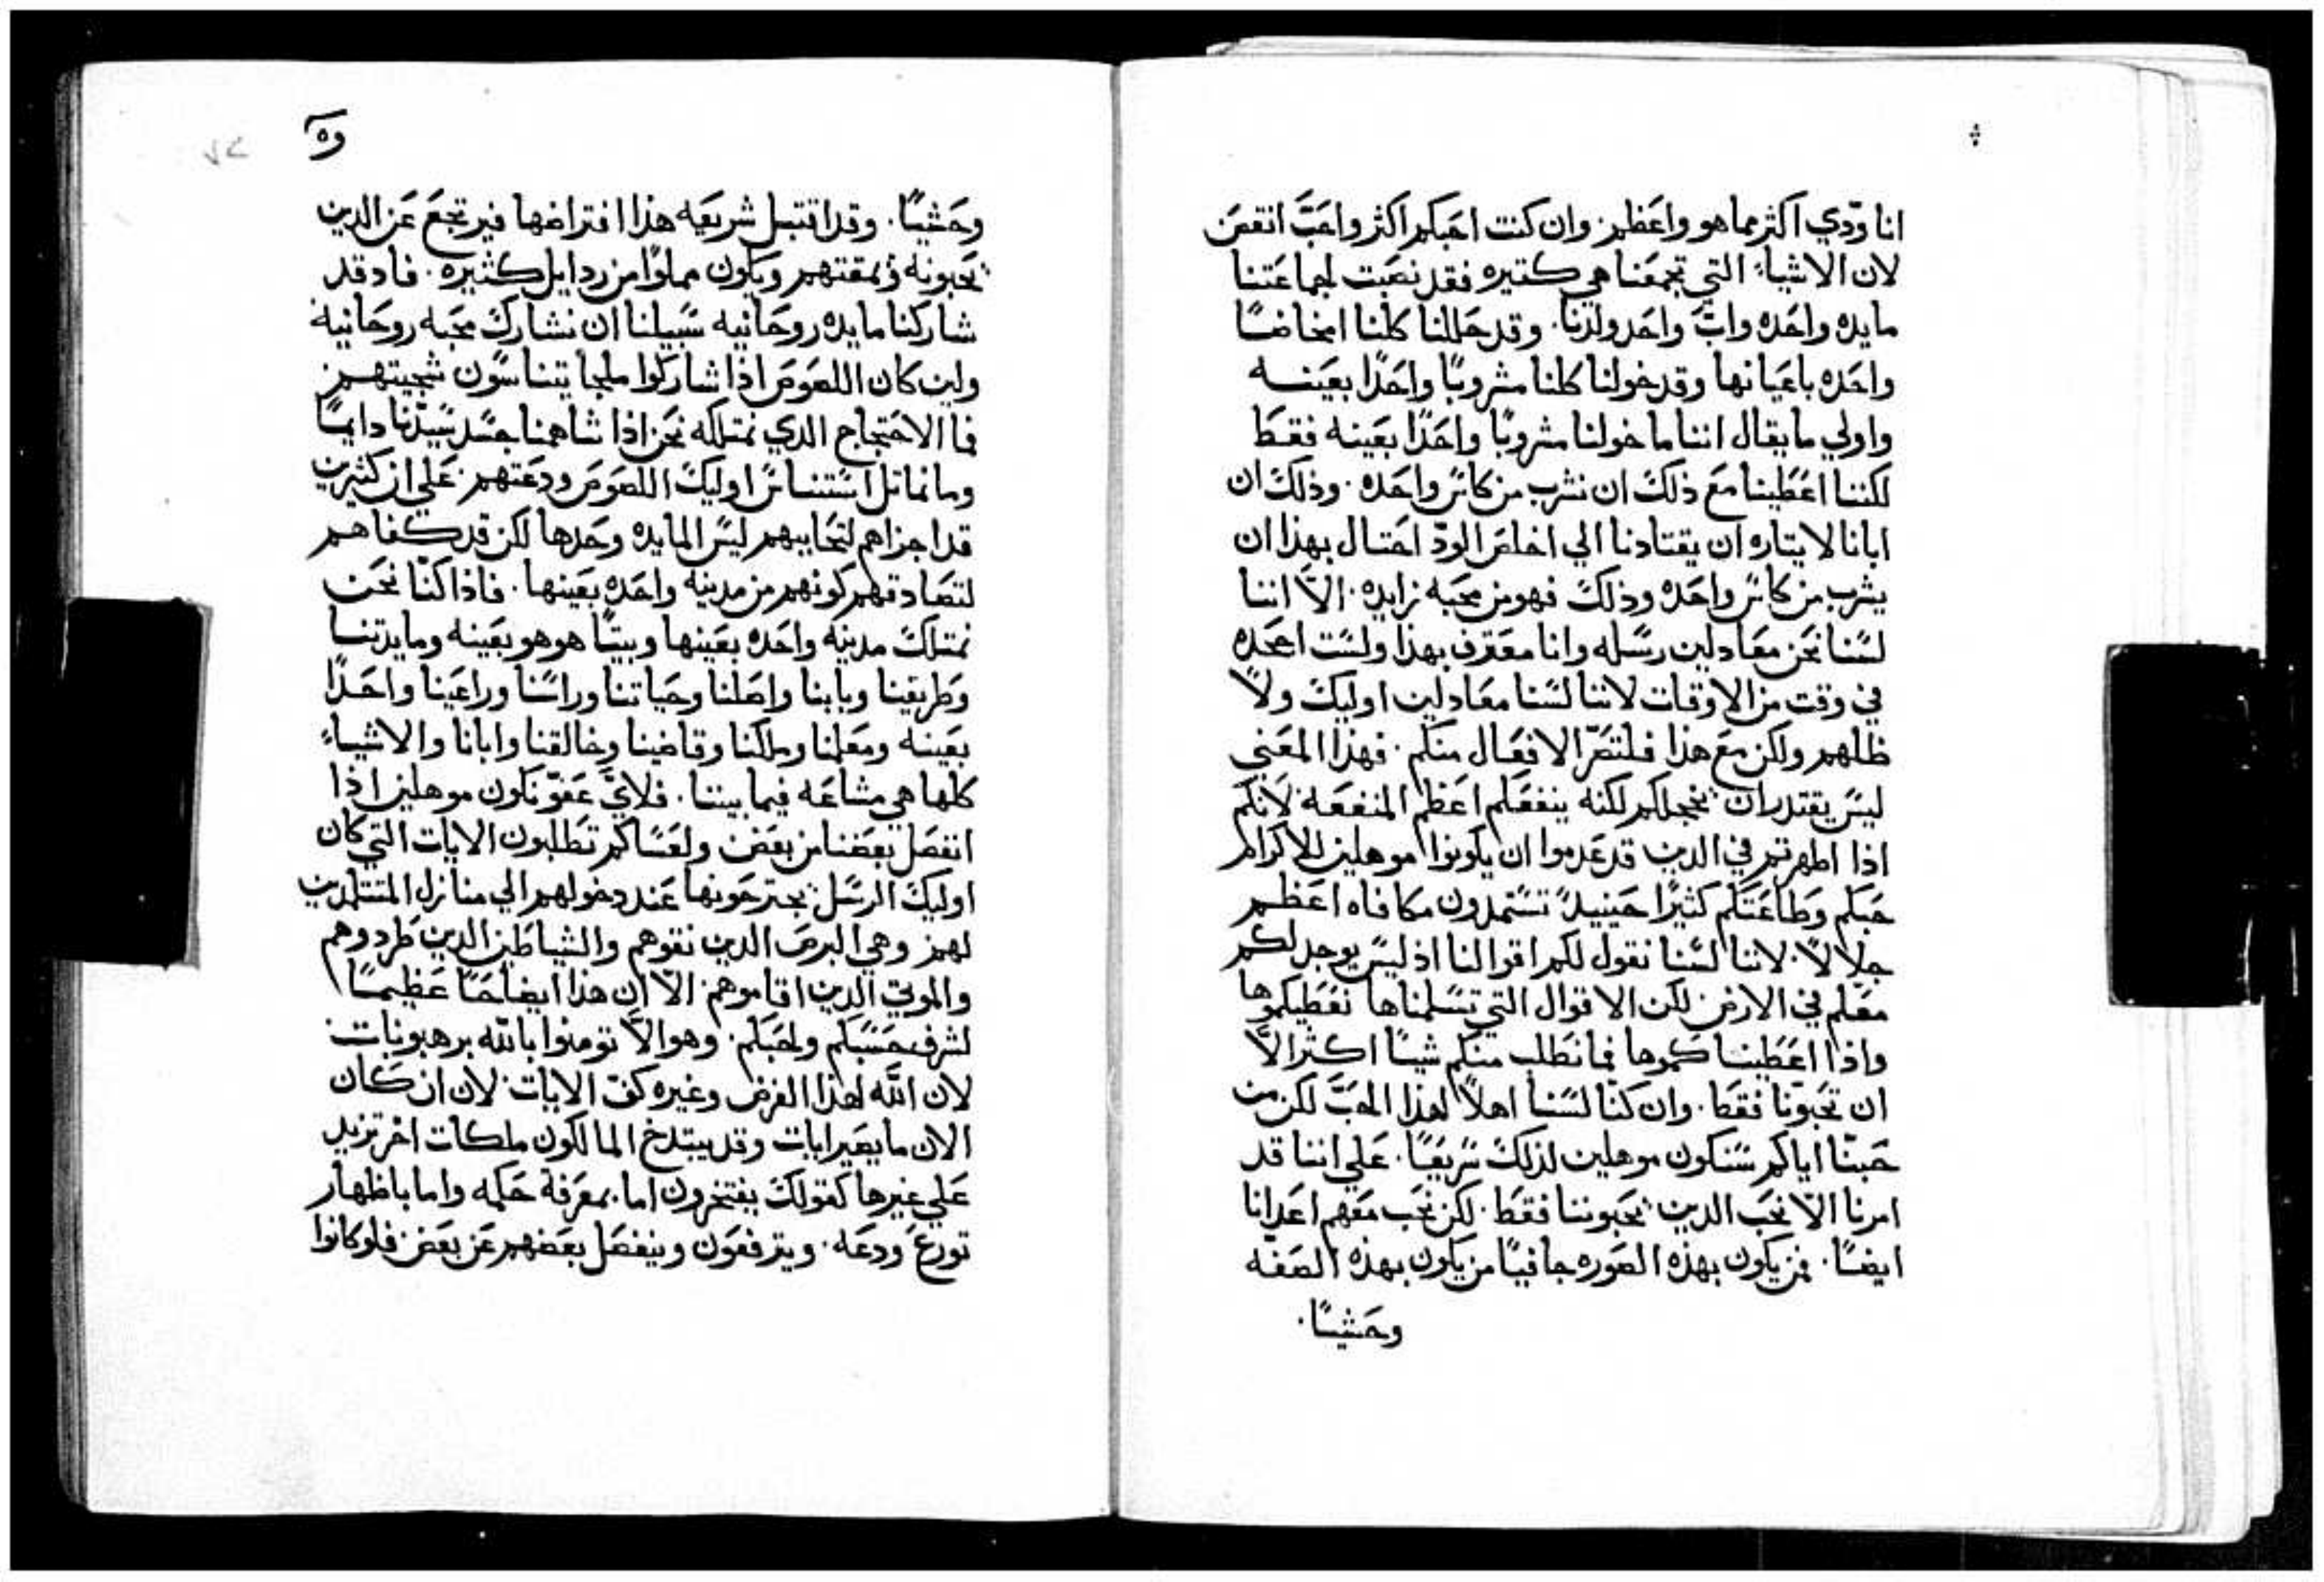 انا ودّي اكثر مما هو واعظم. وان كنت احبكم اكثر واحَبّ انقص
لان الاشياء التي تجمعنا هي كتيره فقد نصبت لجماعتنا
مايده واحده واب واحد ولدنا. وقد حللنا كلنا امخاضًا
واحده باعيانها وقد خولنا كلنا مشروبًا واحدًا بعينه
واولي ما يقال اننا ما خولنا مشروبًا واحدًا بعينه فقط
لكننا اعطينا مع ذلك ان نشرب من كاس واحده. وذلك ان
ابانا لايتاره ان يقتادنا الي اخلص الودّ احتال بهذا ان
يشرب من كاس واحده وذلك فهو من محبه زايده. الاّ اننا
لسنا نحن معادلين رسله وانا معترف بهذا ولست اجحده
في وقت من الاوقات لاننا لسنا معادلين اوليك ولا
ظلهم ولكن مع هذا فلتتمّ الافعال منكم. فهذا المعني
ليس يقتدر ان يخجلكم لكنه ينفعكم اعظم المنفعه لانكم
اذا اظهرتم في الدين قد عدموا ان يكونوا موهلين للاكرام
حبكم وطاعتكم كثيرًا حينيدٍ تستمدون مكافاه اعظم
جلالاً. لاننا لسنا نقول لكم اقوالنا اذ ليس يوجد لكم
معلم في الارض لكن الاقوال التي تسلمناها نعطيكموها
واذا اعطيناكموها فما نطلب منكم شيًا اكثر الاّ
ان تحبّونا فقط. وان كنّا لسنا اهلاً لهذا الحبّ لكن من
حبنّا اياكم سنكون موهلين لذلك سريعًا. علي اننا قد
امرنا الاّ نحب الدين يحبوننا فقط. لكن نحب معهم اعدانا
ايضًا. فمن يكون بهذه الصوره جافيًا من يكون بهذه الصفه
وحشيًا.
وه
وحشيًا. وقد اقتبل شريعه هذا افتراضها فيرتجع عن الدين
يحبونه ويمقتهم ويكون مملوًا من ردايل كثيره. فاد قد
شاركنا مايده روحانيه سبيلنا ان نشارك محبه روحانيه
ولين كان اللصوص اذا شاركوا ملحًا يتناسون سجيتهم
فما الاحتجاج الدي نمتلكه نحن اذا شاهمنا جسد سيدنا دايمًا
وما نماتل استناس اوليك اللصوص ودعتهم. علي ان كثيرين
قد اجزاهم لتحاببهم ليس المايده وحدها لكن قد كفاهم
لتصادقهم كونهم من مدينه واحده بعينها. فاذا كنّا نحن
نمتلك مدينه واحده بعينها وبيتًا هو هو بعينه ومايدتنا
وطريقنا وبابنا واصلنا وحياتنا وراسنا وراعينا واحدًا
بعينه ومعلمنا وملكنا وقاضينا وخالقنا وابانا والاشياء
كلها هي مشاعه فيما بيننا. فلايّ عفوّ نكون موهلين اذا
انفصل بعضنا من بعض ولعساكم تطلبون الايات التي كان
اوليك الرسل يجترحونها عند دخولهم الي منازل المتتلمدين
لهم وهي البرص الدين نقوهم والشياطين الدين طردوهم
والموتي الدين اقاموهم. الاّ ان هذا ايضا حقًا عظيمًا
لشرف حسبكم ولحبكم. وهو الاّ تومنوا بالله برهبونات
لان الله لهذا الغرض وغيره كفّ الايات. لان ان كان
الان ما يصير ايات وقد يبتدخ المالكون ملكات اخر تزيد
علي غيرها كقولك يفتخرون اما بمعرفة حكمه واما باظهار
تورع ودعه. ويترفعون وينفصل بعضهم عن بعض فلو كانوا